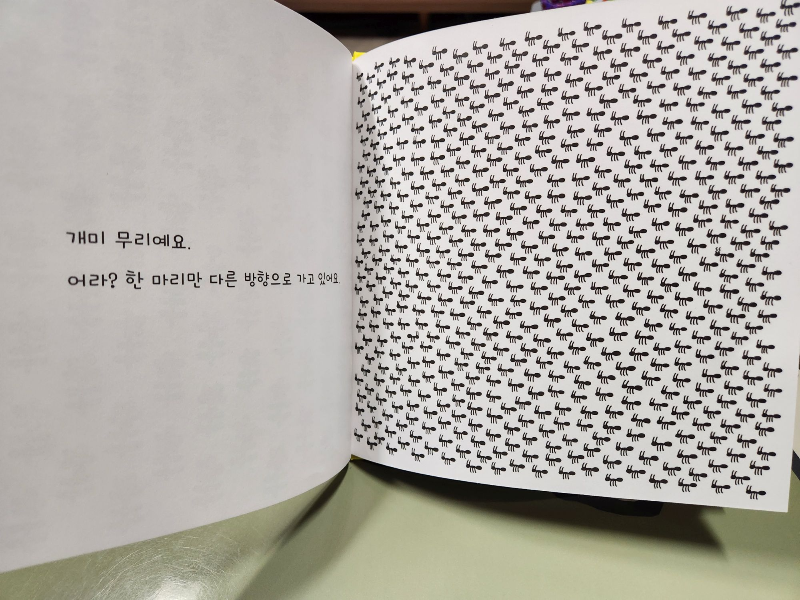 개미 무리예요.
어라? 한 마리만 다른 방향으로 가고 있어요.